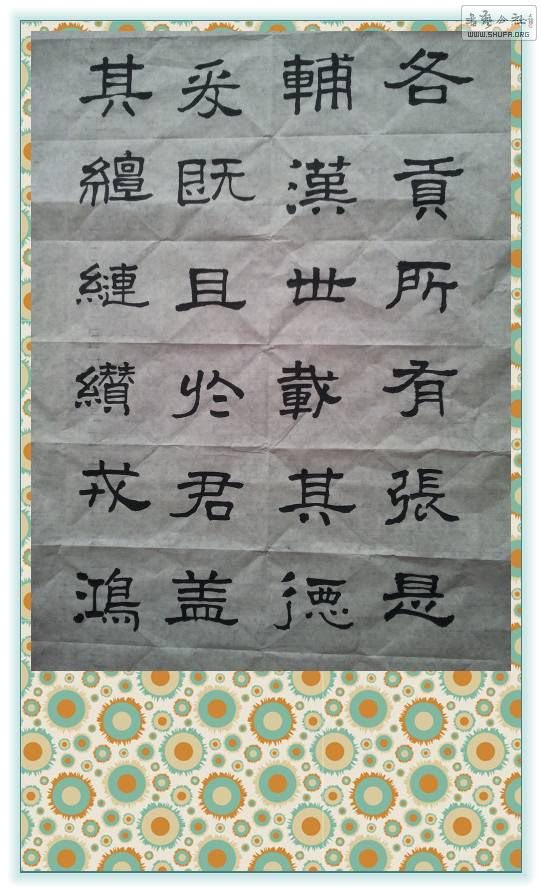 各貢所有張是
輔漢世載其德
爰既且於君盖
其繵縺纘戎鴻
書藝公社
WWW.SHUFA.ORG